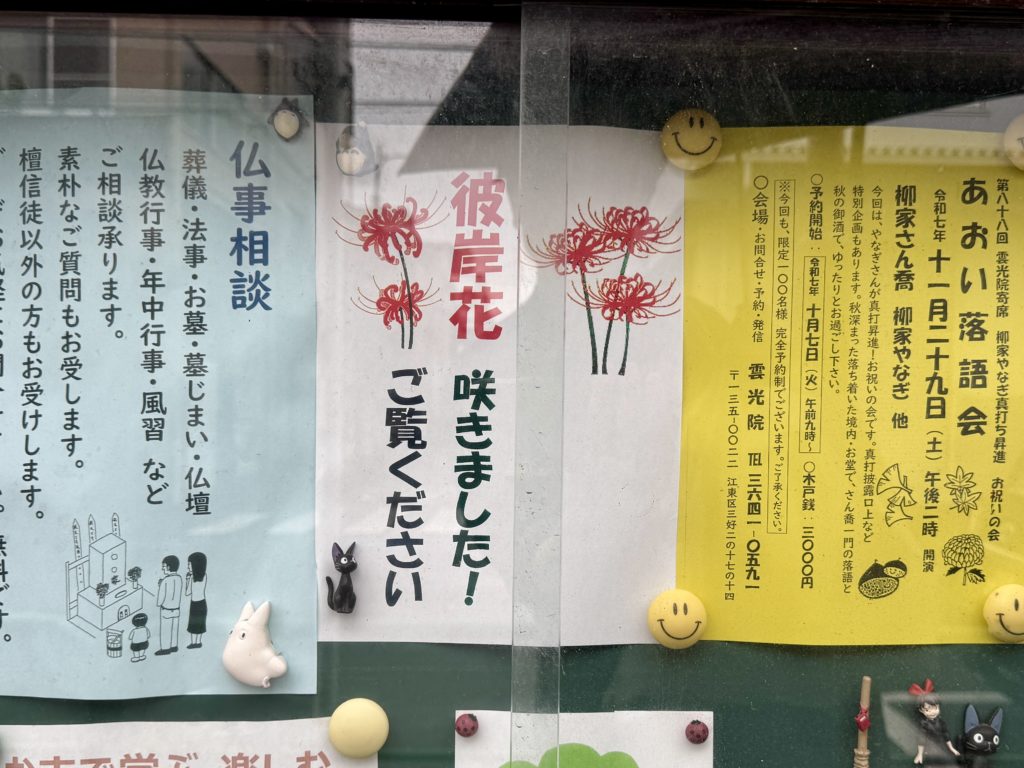 第八十八回 雲光院寄席 柳家やなぎ真打ち昇進 お祝いの会
あおい落語会
令和七年 十一月二十九日(土)午後二時 開演
柳家さん喬 柳家やなぎ 他
今回は、やなぎさんが真打昇進!お祝いの会です。真打披露口上など
特別企画もあります。秋深まった落ち着いた境内・お堂で、さん喬一門の落語と
秋の御酒で、ゆったりとお過ごし下さい。
○予約開始: 令和七年 十月七日(火)午前九時~ ○木戸銭:三〇〇〇円
※今回も、限定一〇〇名様 完全予約制でございます。ご了承ください。
○会場・お問合せ・予約・発信 雲光院 ℡三六四一-〇五九一
〒一三五-〇〇二二 江東区三好二の十七の十四
彼岸花 咲きました!
ご覧ください
仏事相談
葬儀・法事・お墓・墓じまい・仏壇
仏教行事・年中行事・風習 など
ご相談承ります。
素朴なご質問もお受します。
檀信徒以外の方もお受けします。
無料です。
で学ぶ 楽しむ